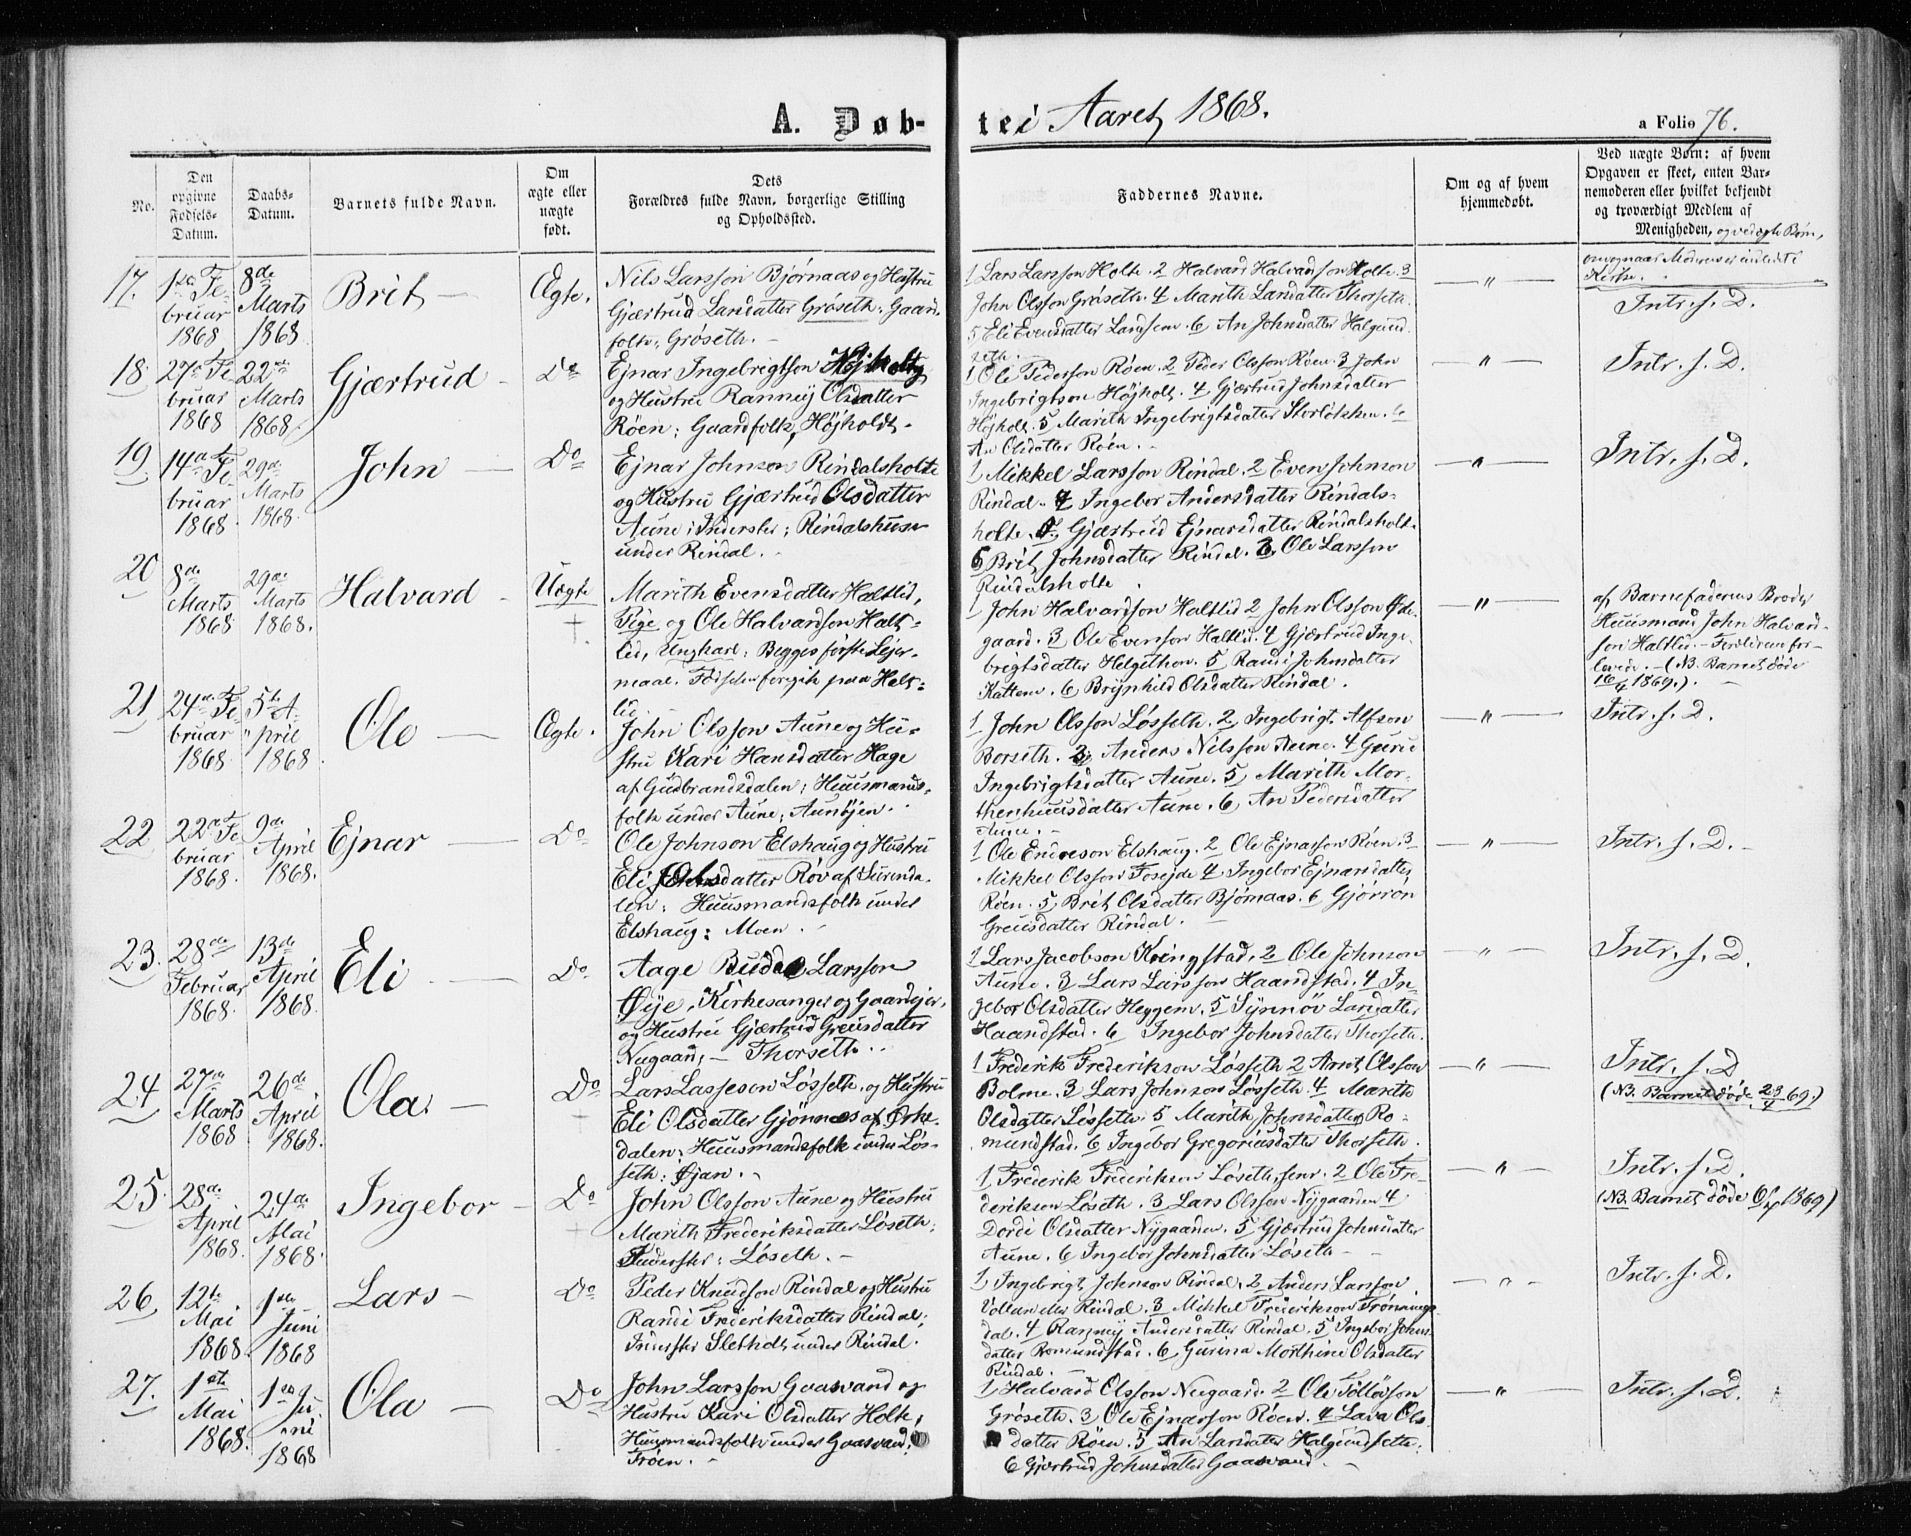 A. Døb-
te i Aaret 1868.
a Folio 76.
No.
Den
opgivne
Fødsels-
Datum.
Daabs-
Datum.
Barnets fulde Navn.
Om
ægte eller
uægte
født.
Dets
Forældres fulde Navn, borgerlige Stilling
og Opholdssted.
Faddernes Navne.
Om og af hvem
hjemmedøbt.
Ved uægte Børn: af hvem
Opgaven er skeet, enten Bar-
nemoderen eller hvilket bekjendt
og troværdigt Medlem af
Menigheden, og ved ægte Børn,
Moderen er indledt i
Kirke.
17.
1ste Fe-
bruar
1868
8de
Marts
1868.
Brit
Ægte.
Nils Larsson Bjørnaas og Hustru
Gjærtrud Larsdatter Grøseth: Gaard-
folk: Grøseth.
1 Lars Larsson Holte. 2 Halvard Halvardson Holte. 3
John Olsson Grøseth. 4 Marith Larsdatter Thorseth.
5 Eli Evensdatter Landsem. 6 An Johnsdatter Halgund-
seth.
"
Intr. s. D.
18.
27de Fe
bruar
1868
22de
Marts
1868.
Gjærtrud
Do
Ejnar Ingebrigtson Højholt
og Hustru Rannej Olsdatter
Røen: Gaardfolk, Højholdt.
1 Ole Pederson Røen. 2 Peder Olsson Røen. 3 John
Ingebrigtson Højholt. 4 Gjærtrud Johnsdatter
Højholt. 5 Marith Ingebrigtsdatter Storløkken. 6
An Olsdatter Røen.
"
Intr. s. D.
19
14de Fe
bruar
1868
29de
Marts
1868.
John
Do
Ejnar Johnson Rindalsholte
og Hustru Gjærtrud Olsdatter
Aune: Inderster; Rindalshuse
under Rindal.
1 Mikkel Larsson Rindal. 2 Even Johnson
Rindal. 4 Ingebor Andersdatter Rindals-
holte. Gjærtrud Ejnarsdatter Rindalsholt.
6 Brit Johnsdatter Rindal. 3 Ole Larsson
Rindalsholte
"
Intr. s. D.
20
8de
Marts
1868
29de
Marts
1868.
Halvard
Uægte
Marith Evensdatter Haltlid,
Pige og Ole Halvardson Halt-
lid, Ungkarl: Begges første Leier-
maal. Fødselen foregik paa Halt-
lid.
1 John Halvardson Haltlid 2 John Olsson Øde-
gaard. 3 Ole Evenson Haltlid. 4 Gjærtrud Inge-
brigtsdatter Helgethon. 5 Randi Johnsdatter
Kattem. 6 Brynhild Olsdatter Rindal.
"
af Barnefaderens Broder
Huusmand John Halvard-
son Haltlid. - Forældrene for-
lovede. - (NB. Barnet døde
16/4 1869.)
21
24de Fe
bruar
1868
5te A-
pril
1868
Ole
Ægte.
John Olsson Aune og Hu-
stru Kari Hansdatter Hage
af Gudbrandsdalen: Huusmands-
folk under Aune; Aunøjen.
1 John Olsson Løsseth. 2 Ingebrigt Alfson
Borseth. 3 Anders Nilsson Aune. 4 Guru
Ingebrigtsdatter Aune. 5 Marith Mor-
thenhuusdatter Aune. 6 An Pedersdatter
Aune.
"
Intr. s. D.
22
22de Fe
bruar
1868.
9de
April
1868.
Ejnar
Do
Ole Johnson Elshaug og Hustru
Eli Olsdatter Røv af Surenda-
len: Huusmandsfolk under
Elshaug: Moen.
1 Ole Endreson Elshaug. 2 Ole Ejnarson Røen. 3
Mikkel Olsson Fosejde 4 Ingebor Ejnarsdatter
Røen. 5 Brit Olsdatter Bjørnaas. 6 Gjørron
Greusdatter Rindal.
"
Intr. s. D.
23.
28de
Februar
1868.
13de
April
1868.
Eli
Do
Aage Larsson
Øye, Kirkesanger og Gaardejer,
og Hustru Gjærtrud Greusdatter
Nugaard, - Thorseth.
1 Lars Jacobson Kringstad. 2 Ole Johnson
Aune. 3 Lars Larsson Haandstad. 4 In-
gebor Olsdatter Heggem. 5 Synnøv Larsdatter
Haandstad. 6 Ingebor Johnsdatter Thorseth.
"
Intr. s. D.
24
27de
Marts
1868
26de
April
1868.
Ola.
Do
Lars Lasseson Løsseth. og Hustru
Eli Olsdatter Gjønnæs af Ørke-
dalen: Huusmandsfolk under Løs-
seth: Øjan.
1 Frederik Frederikson Løsseth 2 Arnt Olsson
Bolme. 3 Lars Johnson Løsseth. 4 Marith
Olsdatter Løsseth. 5 Marith Johnsdatter Ro-
mundstad. 6 Ingebor Gregoriusdatter Thorseth.
"
Intr. s. D
(NB. Barnet døde 23/4 69.)
25.
28de
April
1868.
24de
Mai
1868.
Ingebor
Do
John Olsson Aune og Hustru
Marith Frederiksdatter Løseth;
Inderster: Løseth.
1 Frederik Frederiksen Løseth senr. 2 Ole Fre-
derikson Løseth. 3 Lars Olsson Nygaarden 4
Dordi Olsdatter Nygaarden. 5 Gjærtrud Johnsdatter
Aune. 6 Ingebor Johnsdatter Løseth
"
Intr. s. D.
(NB. Barnet døde 1869)
26
12te
Mai
1868.
1ste
Juni
1868
Lars
Do
Peder Knudson Rindal og Hustru
Randi Frederiksdatter Rindal;
Inderster Sletholt under Rindal.
1 Ingebrigt Johnson Rindal. 2 Anders Larsson
Rindal. 3 Mikkel Frederikson Trønnings-
dal. 4 Rannej Andersdatter Rindal. 5 Ingebor Johns-
datter Romundstad. 6 Gurina Morthine Olsdatter
Rindal.
"
Intr. s. D.
27.
1ste
Mai
1868.
1ste Ju-
ni
1868
Ola
Do
John Larsson Gaasvand og
Hustru Kari Olsdatter Holte;
Huusmandsfolk under Gaasvand;
Trøen.
1 Halvard Olsson Nugaard. 2 Ole Tølløvson
Grøseth. 3 Ole Ejnarson Røen. 4 Lava Ols-
datter Røen. 5 An Larsdatter Halgundseth.
6 Gjærtrud Johnsdatter Gaasvand.
"
Intr. s. D.